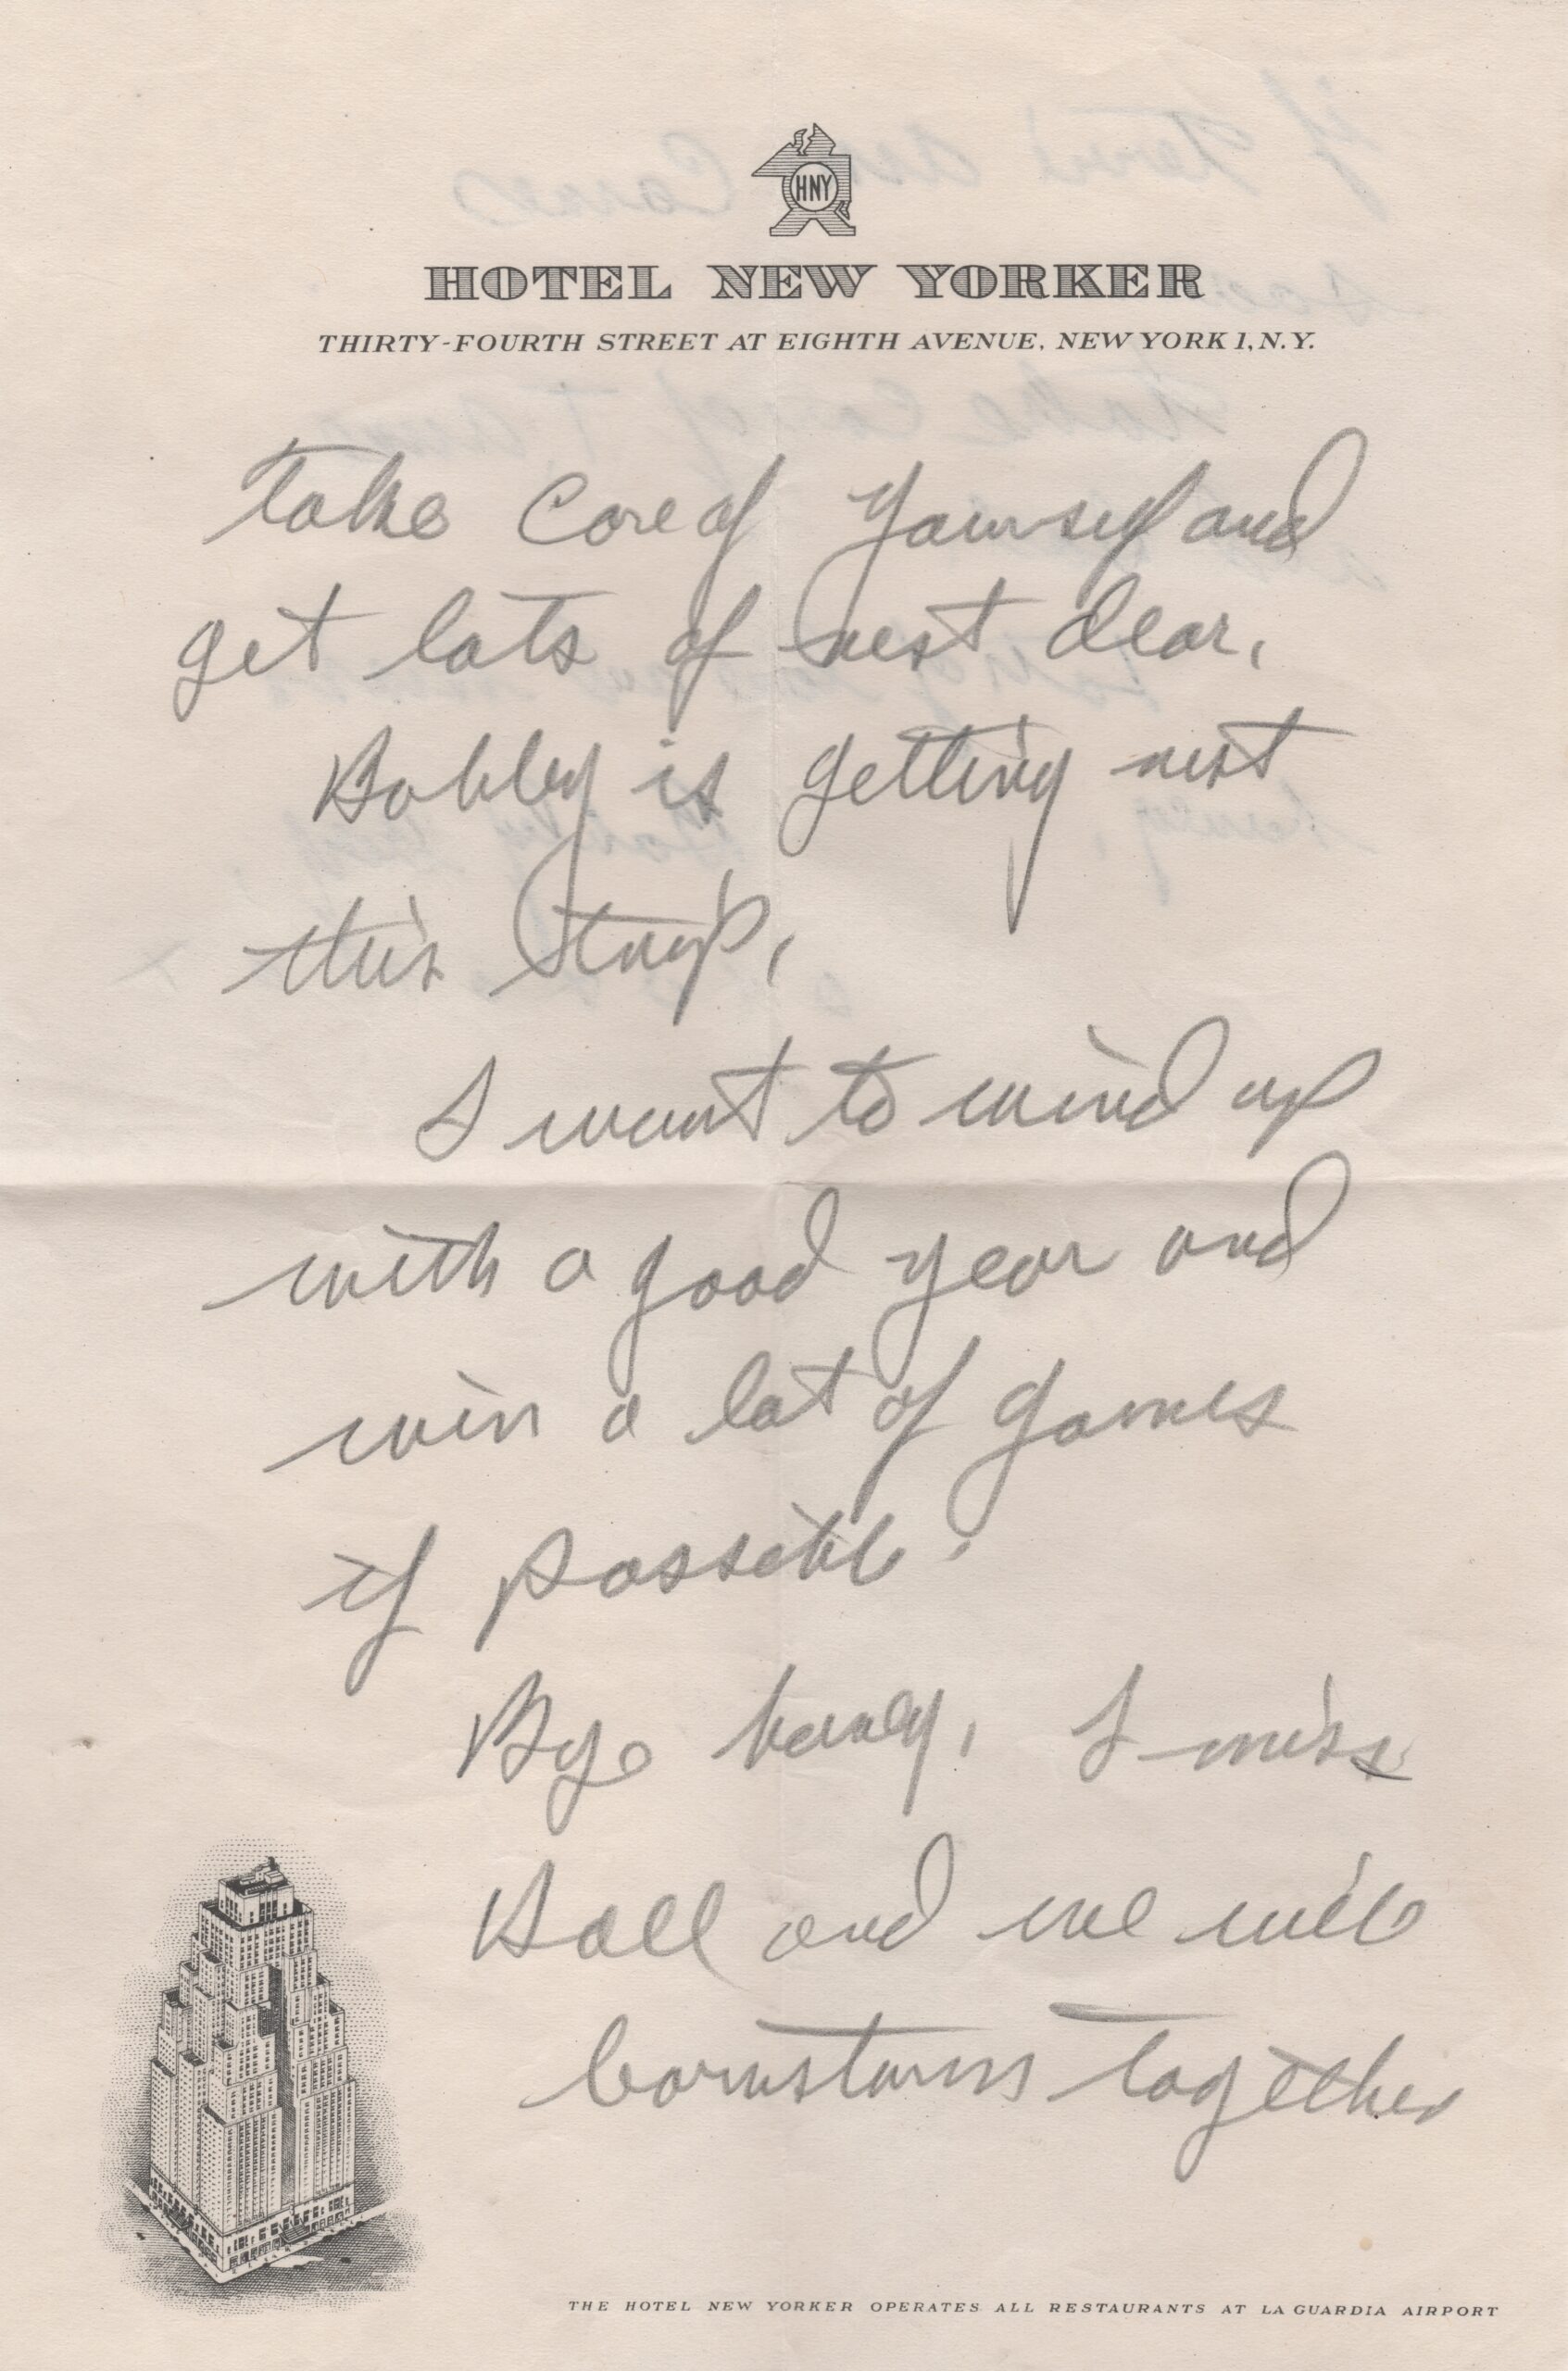 HNY
HOTEL NEW YORKER
THIRTY-FOURTH STREET AT EIGHTH AVENUE, NEW YORK 1, N.Y.
take care of yourself and
get lots of rest dear,
Bobby is getting rest
this trip,
I want to wind up
with a good year and
win a lot of games
if possible.
Bye honey, I miss
Hall and we will
barnstorm together
THE HOTEL NEW YORKER OPERATES ALL RESTAURANTS AT LA GUARDIA AIRPORT